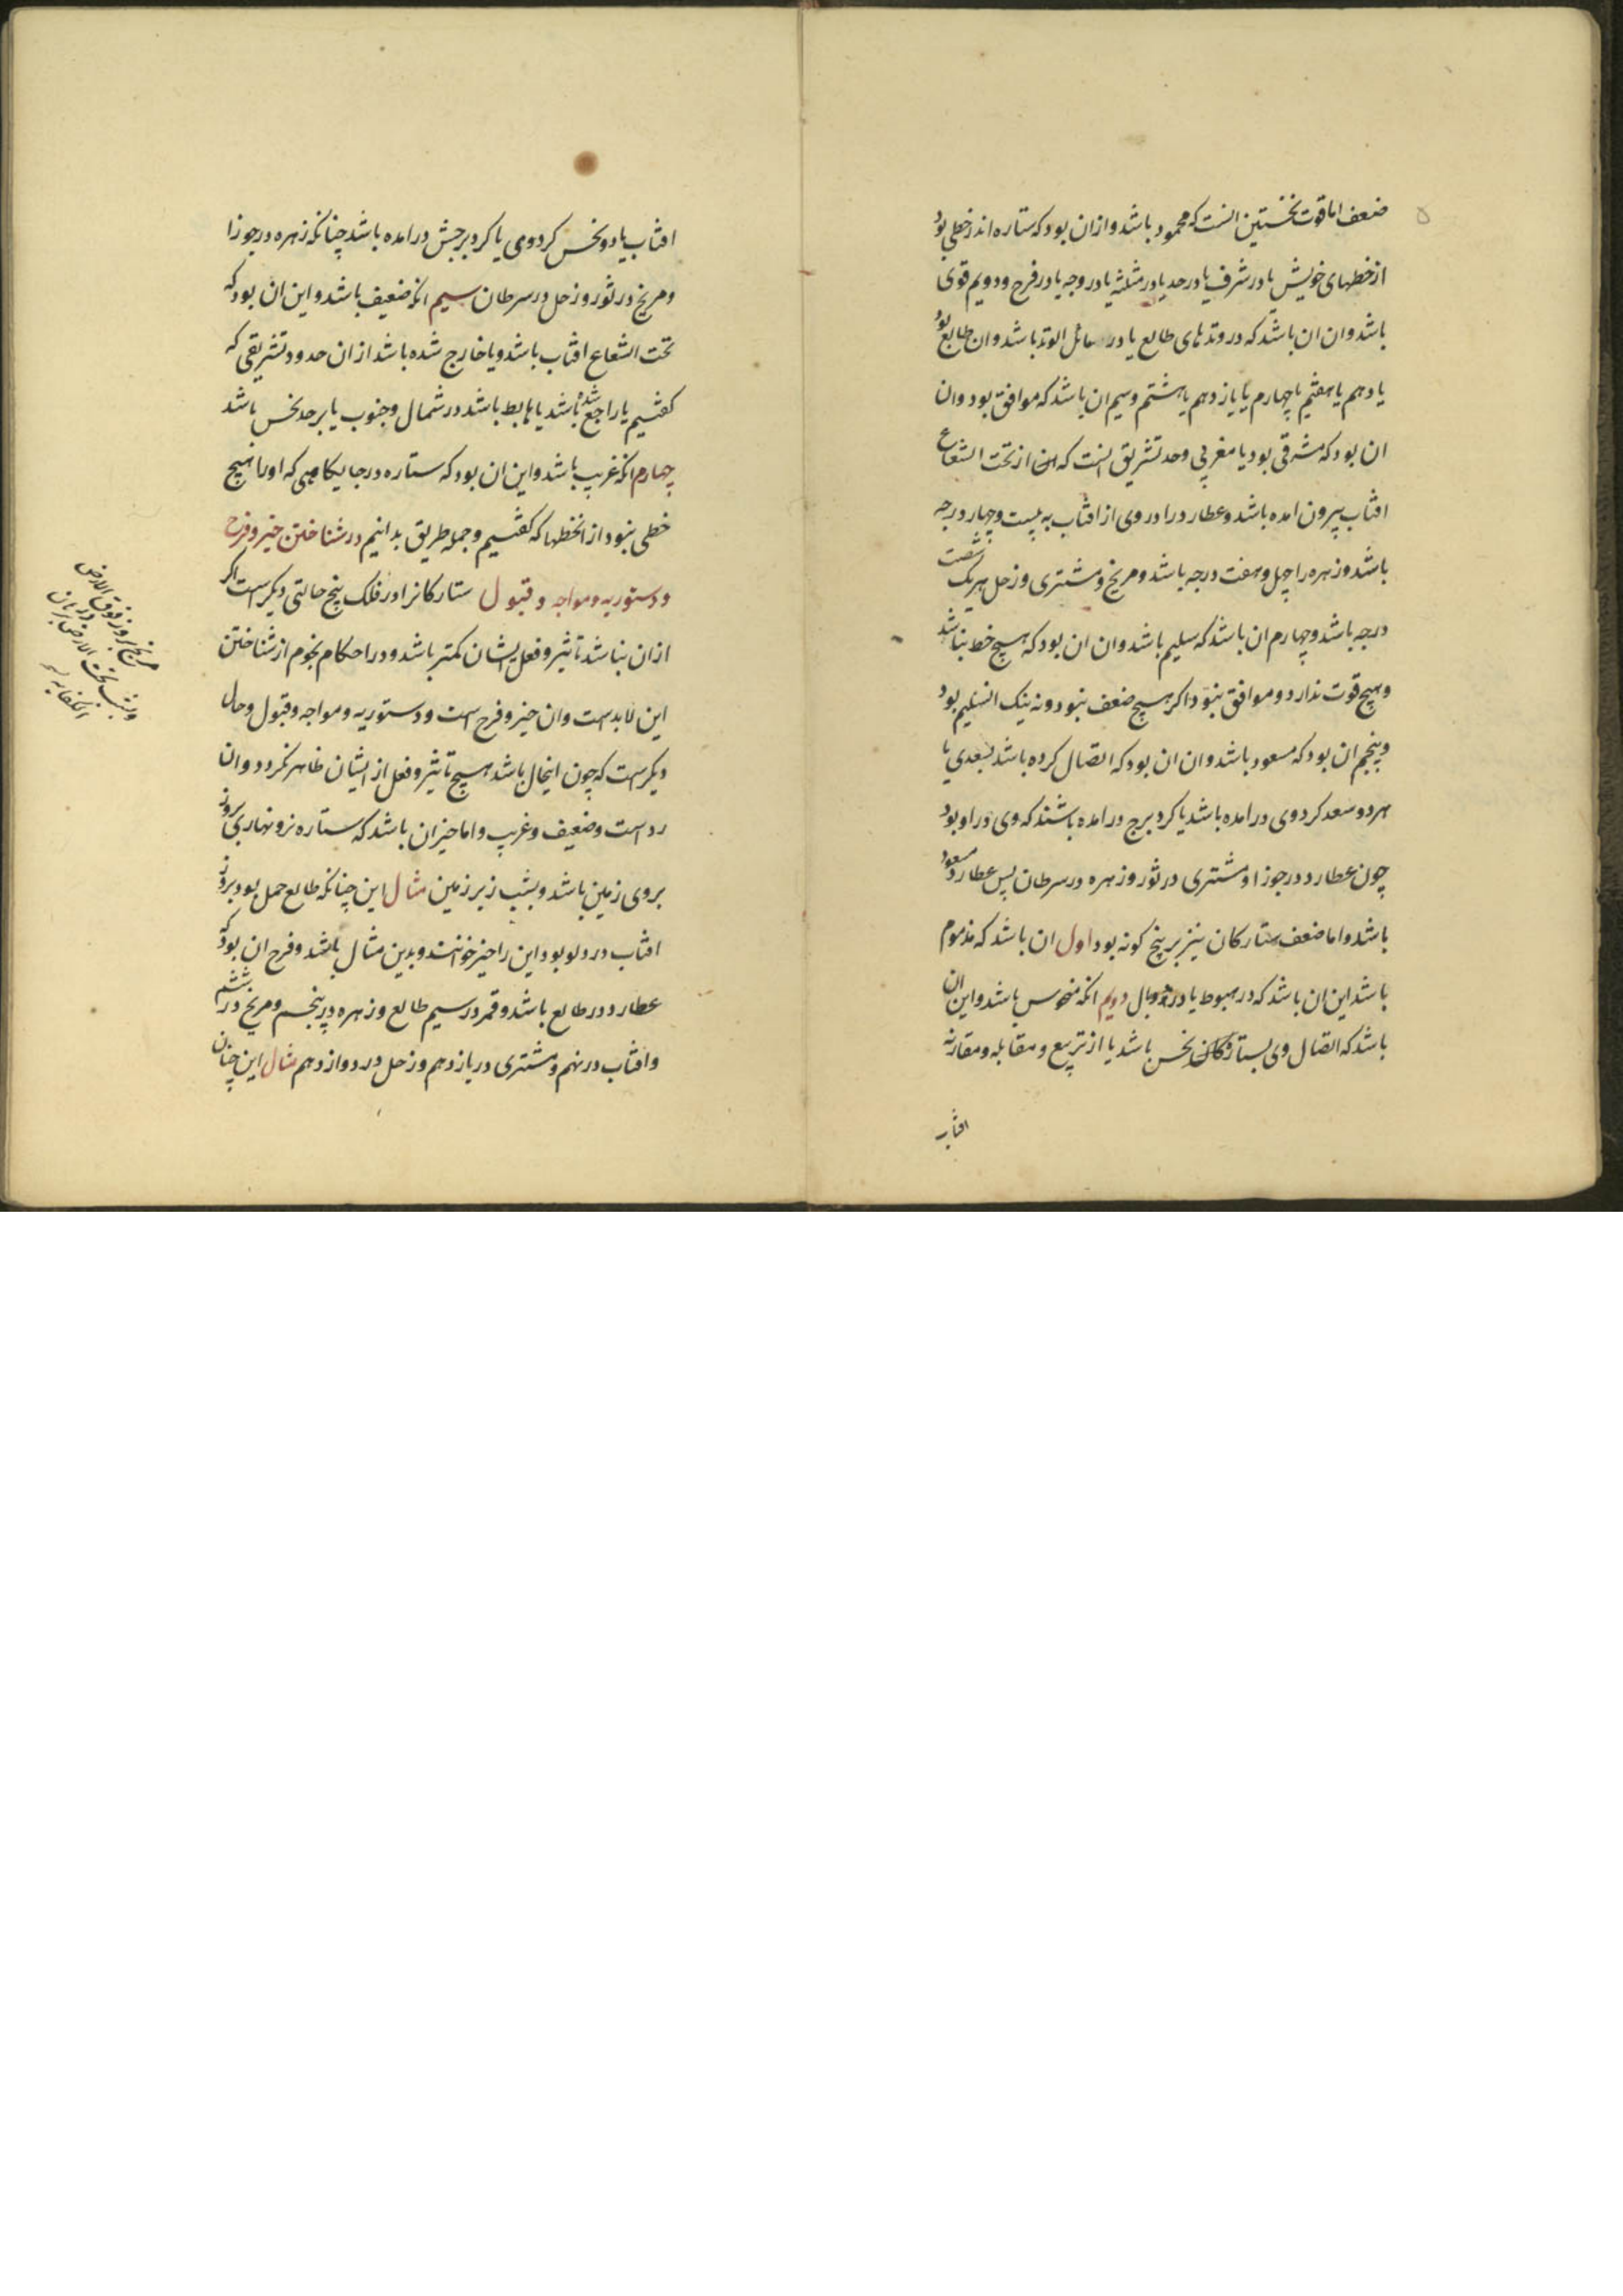 ضعف اما قوت نخستین انست که محمود باشد و ازان بود که ستاره اندر خطی بود
از خطهای خویش یا در شرف یا در حد یا در مثلثه یا در وجه یا در فرح و دویم قوی
باشد و ان ان باشد که در وتدهای طالع یا در مائل الوتد باشد و ان طالع بود
یا دهم یا هفتم یا چهارم یا یازدهم یا هشتم و سیم ان باشد که موافق بود و ان
ان بود که مشرقی بود یا مغربی و حد تشریق انست که از تحت الشعاع
افتاب بیرون امده باشد و عطارد را دوری از افتاب به بیست و چهار درجه
باشد و زهره را چهل و هفت درجه باشد و مریخ و مشتری و زحل هر یک شصت
درجه باشد و چهارم ان باشد که سلیم باشد و ان ان بود که هیچ خط نباشد
و هیچ قوت ندارد و موافق نبود اکر هیچ ضعف نبود و نه نیک انسلیم بود
و پنجم ان بود که مسعود باشد و ان ان بود که اتصال کرده باشد بسعدی یا
هر دو سعد کرد وی درامده باشد یا کرد برج درامده باشند که وی در او بود
چون عطارد در جوزا و مشتری در ثور و زهره در سرطان پس عطارد مسعود
باشد و اما ضعف ستارکان نیز بر پنج کونه بود اول ان باشد که مذموم
باشد این ان باشد که در هبوط یا در وبال دویم انکه منحوس باشد و این ان
باشد که اتصال وی بستارکان نحس باشد یا از تربیع و مقابله و مقارنه
افتاب
افتاب یا دو نحس کرد وی یا کرد برجش درامده باشد چنانکه زهره در جوزا
و مریخ در ثور و زحل در سرطان سیم انکه ضعیف باشد و این ان بود که
تحت الشعاع افتاب باشد و یا خارج شده باشد از ان حدود تشریقی که
کفتیم یا راجع شده باشد یا هابط باشد در شمال و جنوب یا بر حد نحس باشد
چهارم انکه غریب باشد و این ان بود که ستاره در جایکاهی که او را هیچ
خطی نبود از انخطها که کفتیم و جمله طریق بدانیم در شناختن حیز و فرح
و دستوریه و مواجه و قبول ستارکانرا در فلک پنج حالتی دیکر است اکر
ازان نباشد تاثیر و فعل ایشان کمتر باشد و در احکام نجوم از شناختن
این لابد است و ان حیز و فرح است و دستوریه و مواجه و قبول و حال
دیکر است که چون اینحال باشد هیچ تاثیر و فعل از ایشان ظاهر نکردد و ان
رد است و ضعیف و غریب و اما حیز ان باشد که ستاره نر و نهاری بروز
بروی زمین باشد و بشب زیر زمین مثال این چنانکه طالع حمل بود و بروز
افتاب در دلو بود این را حیز خوانند و بدین مثال باشد و فرح ان بود که
عطارد در طالع باشد و قمر در سیم طالع و زهره در پنجم و مریخ در ششم
و افتاب در نهم و مشتری در یازدهم و زحل در دوازدهم مثال این چنان
مریخ بروز فوق الارض
و بشب تحت الارض